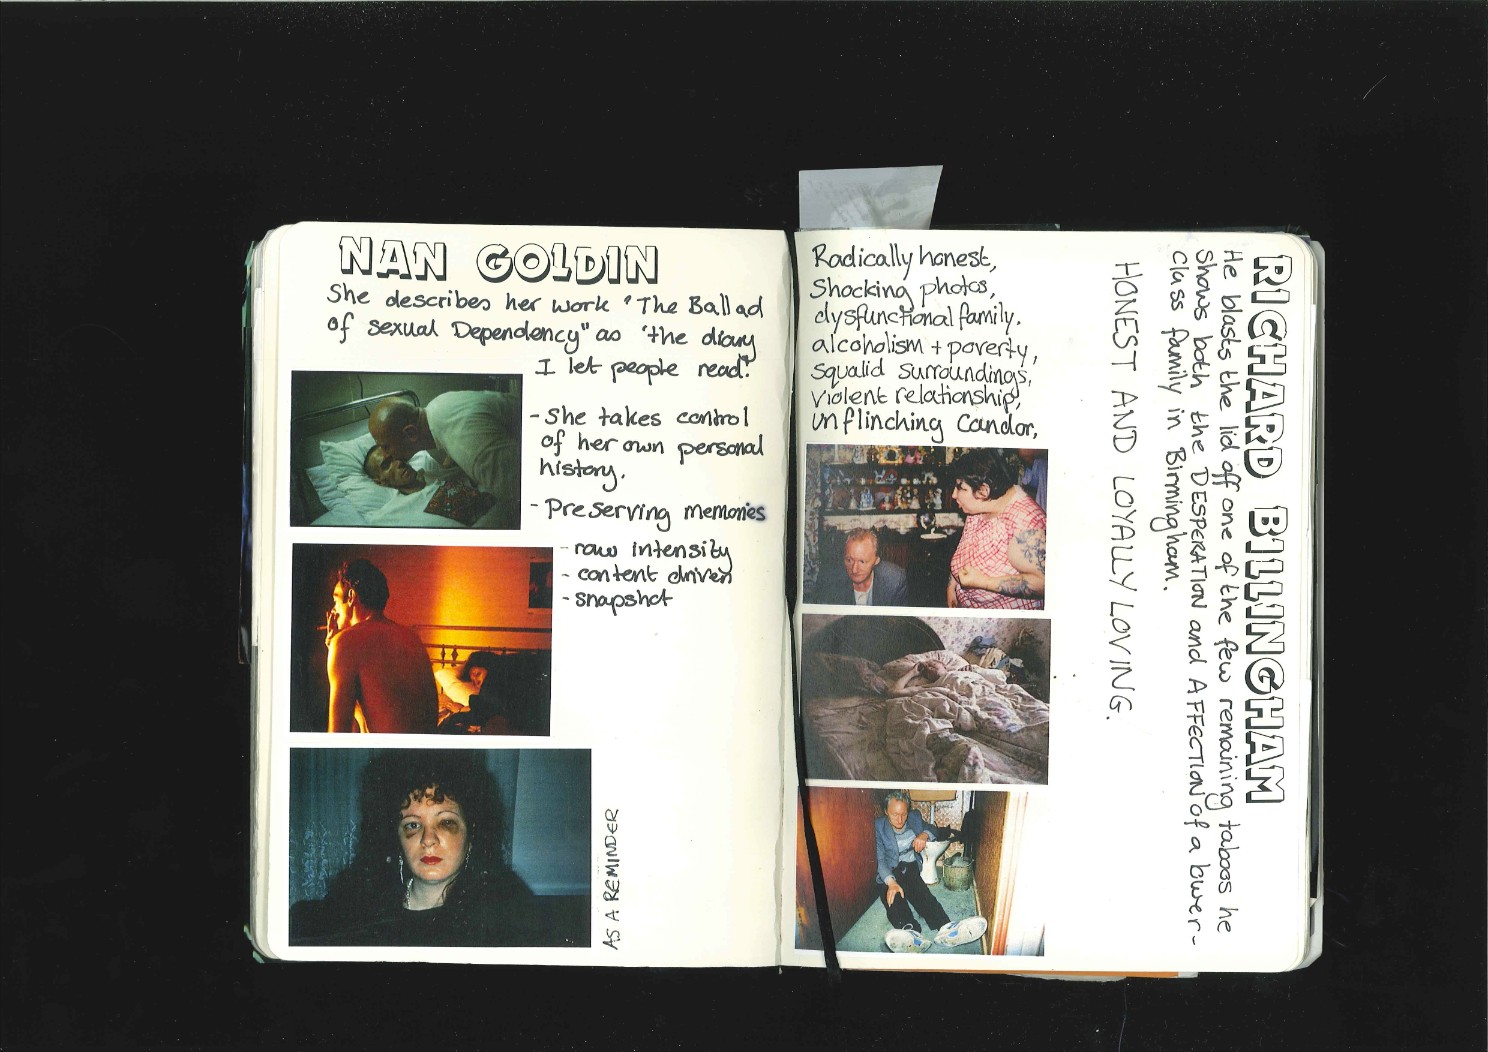 NAN GOLDIN
She describes her work "The Ballad
of sexual Dependency" as 'the diary
I let people read.'
- She takes control
of her own personal
history.
- Preserving memories
- raw intensity
- content driven
- snapshot
AS A REMINDER
Radically honest,
Shocking photos,
dysfunctional family.
alcoholism + poverty,
squalid surroundings,
violent relationship,
unflinching candor,
RICHARD BILLINGHAM
He blasts the lid off one of the few remaining taboos he
Shows both the DESPERATION and AFFECTION of a lower-
Class family in Birmingham.
HONEST AND LOYALLY LOVING.